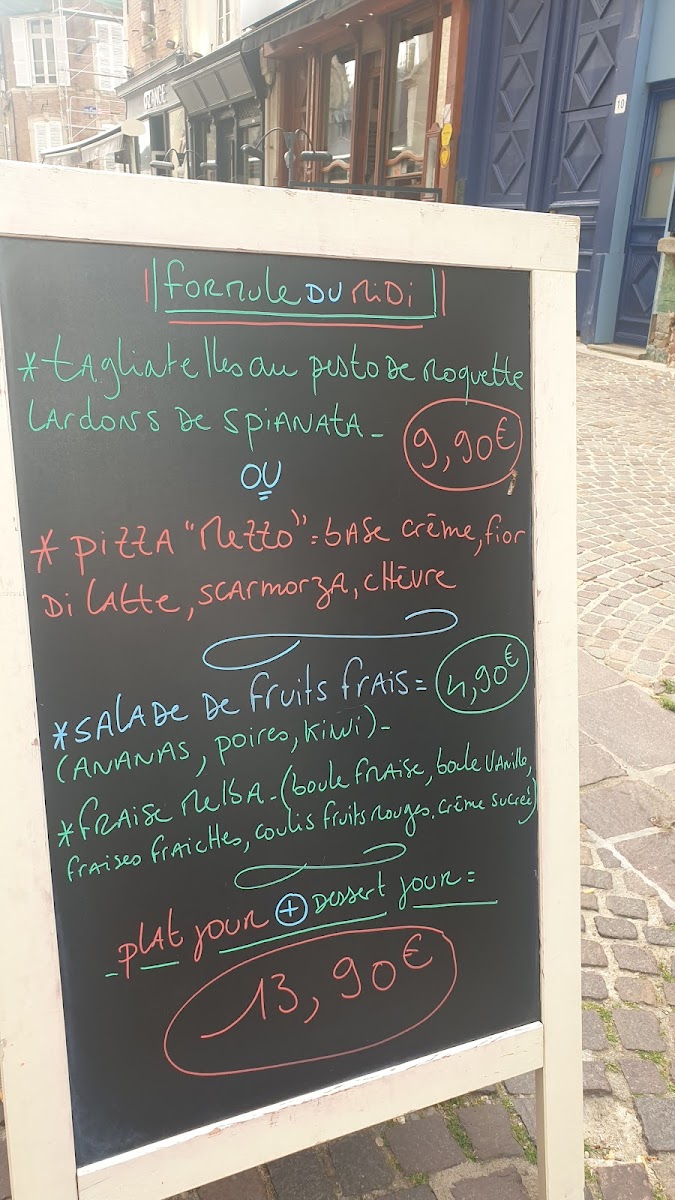 10
FORMULE DU MIDI
* tAgliatelles au pesto De Roquette
LArdons De SpiANATA -
9,90€
OU
* pizzA "Mezzo" = bAse crème, fior
Di LAtte, SCArmorzA, CHèvre
* SALADe De fruits frAis =
4,90€
(ANANAS, poires, kiwi) -
* frAise MelbA - (boule frAise, boule VAnille,
frAises frAiches, coulis fruits Rouges. crème sucrée)
plAt jour + Dessert jour =
13,90€